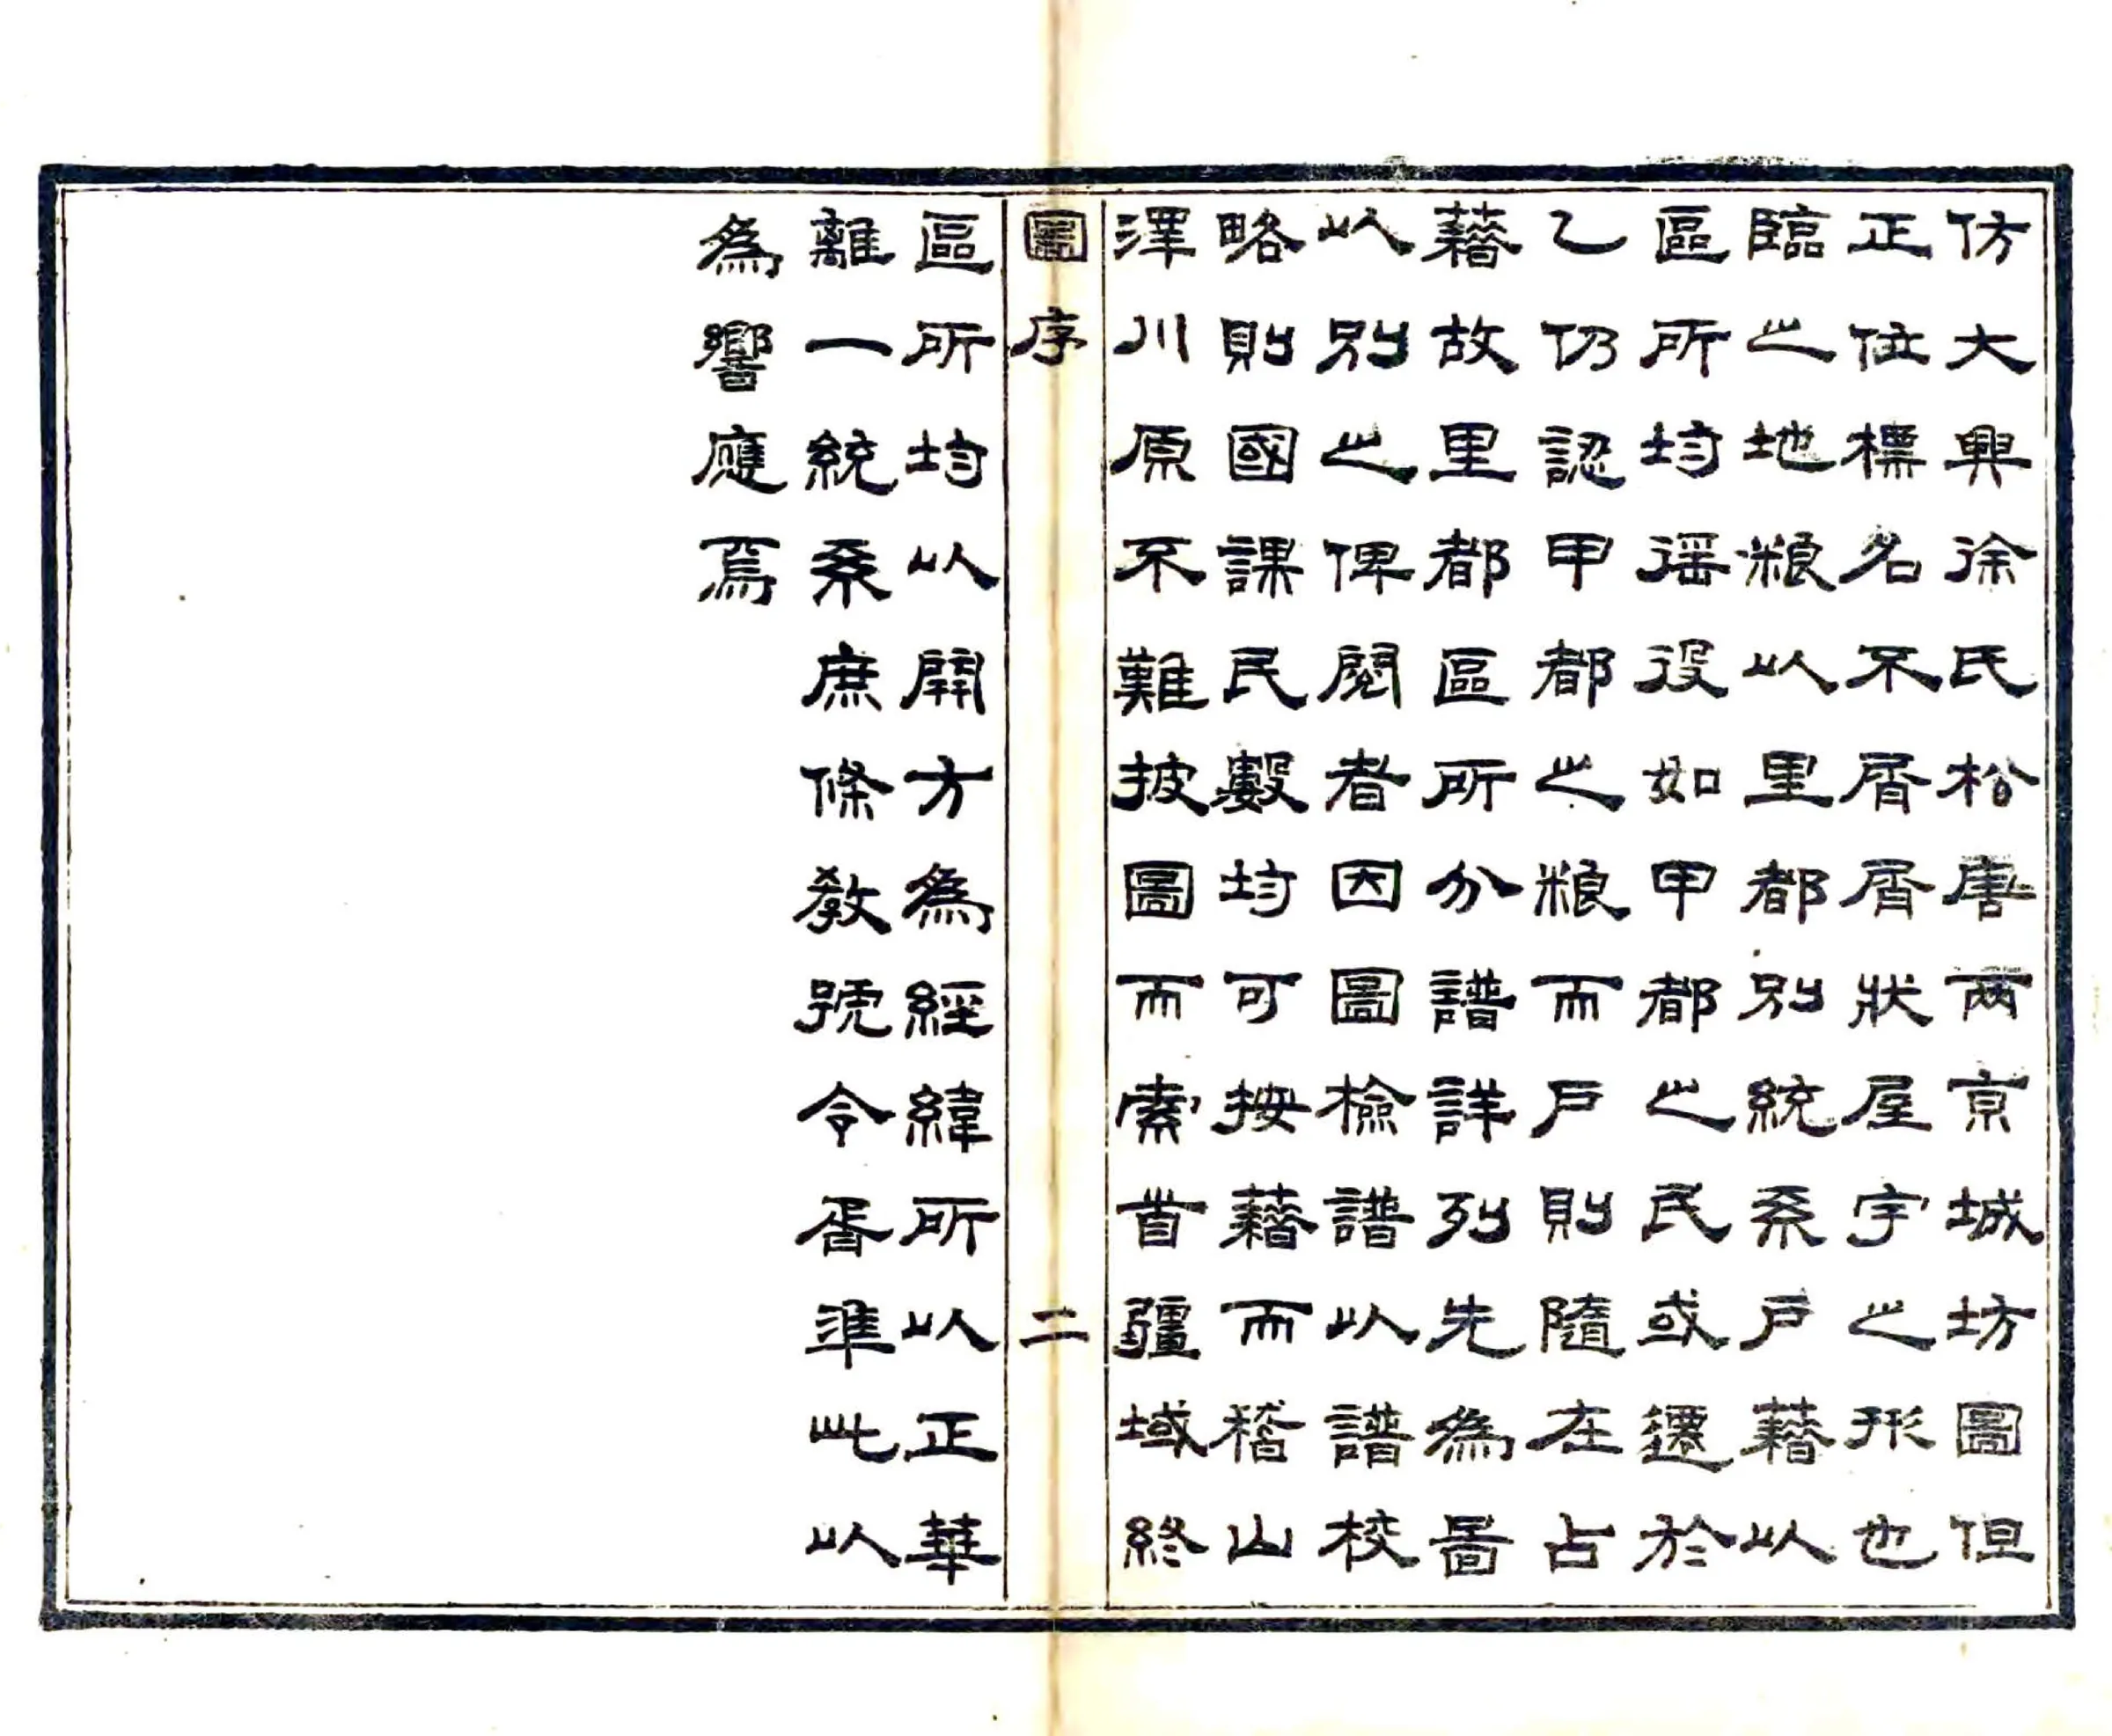 仿大興徐氏松唐两京城坊圖但
正位標名不屑屑狀屋宇之形也
臨之地粮以里都別統系戶藉以
區所均徭役如甲都之民或遷於
乙仍認甲都之粮而戶則隨在占
藉故里都區所分譜詳列先為圖
以別之俾閱者因圖檢譜以譜校
略則國課民數均可按藉而稽山
澤川原不難披圖而索首疆域終
圖序
二
區所均以開方為經緯所以正華
離一統系庶條教號令胥準此以
為響應焉